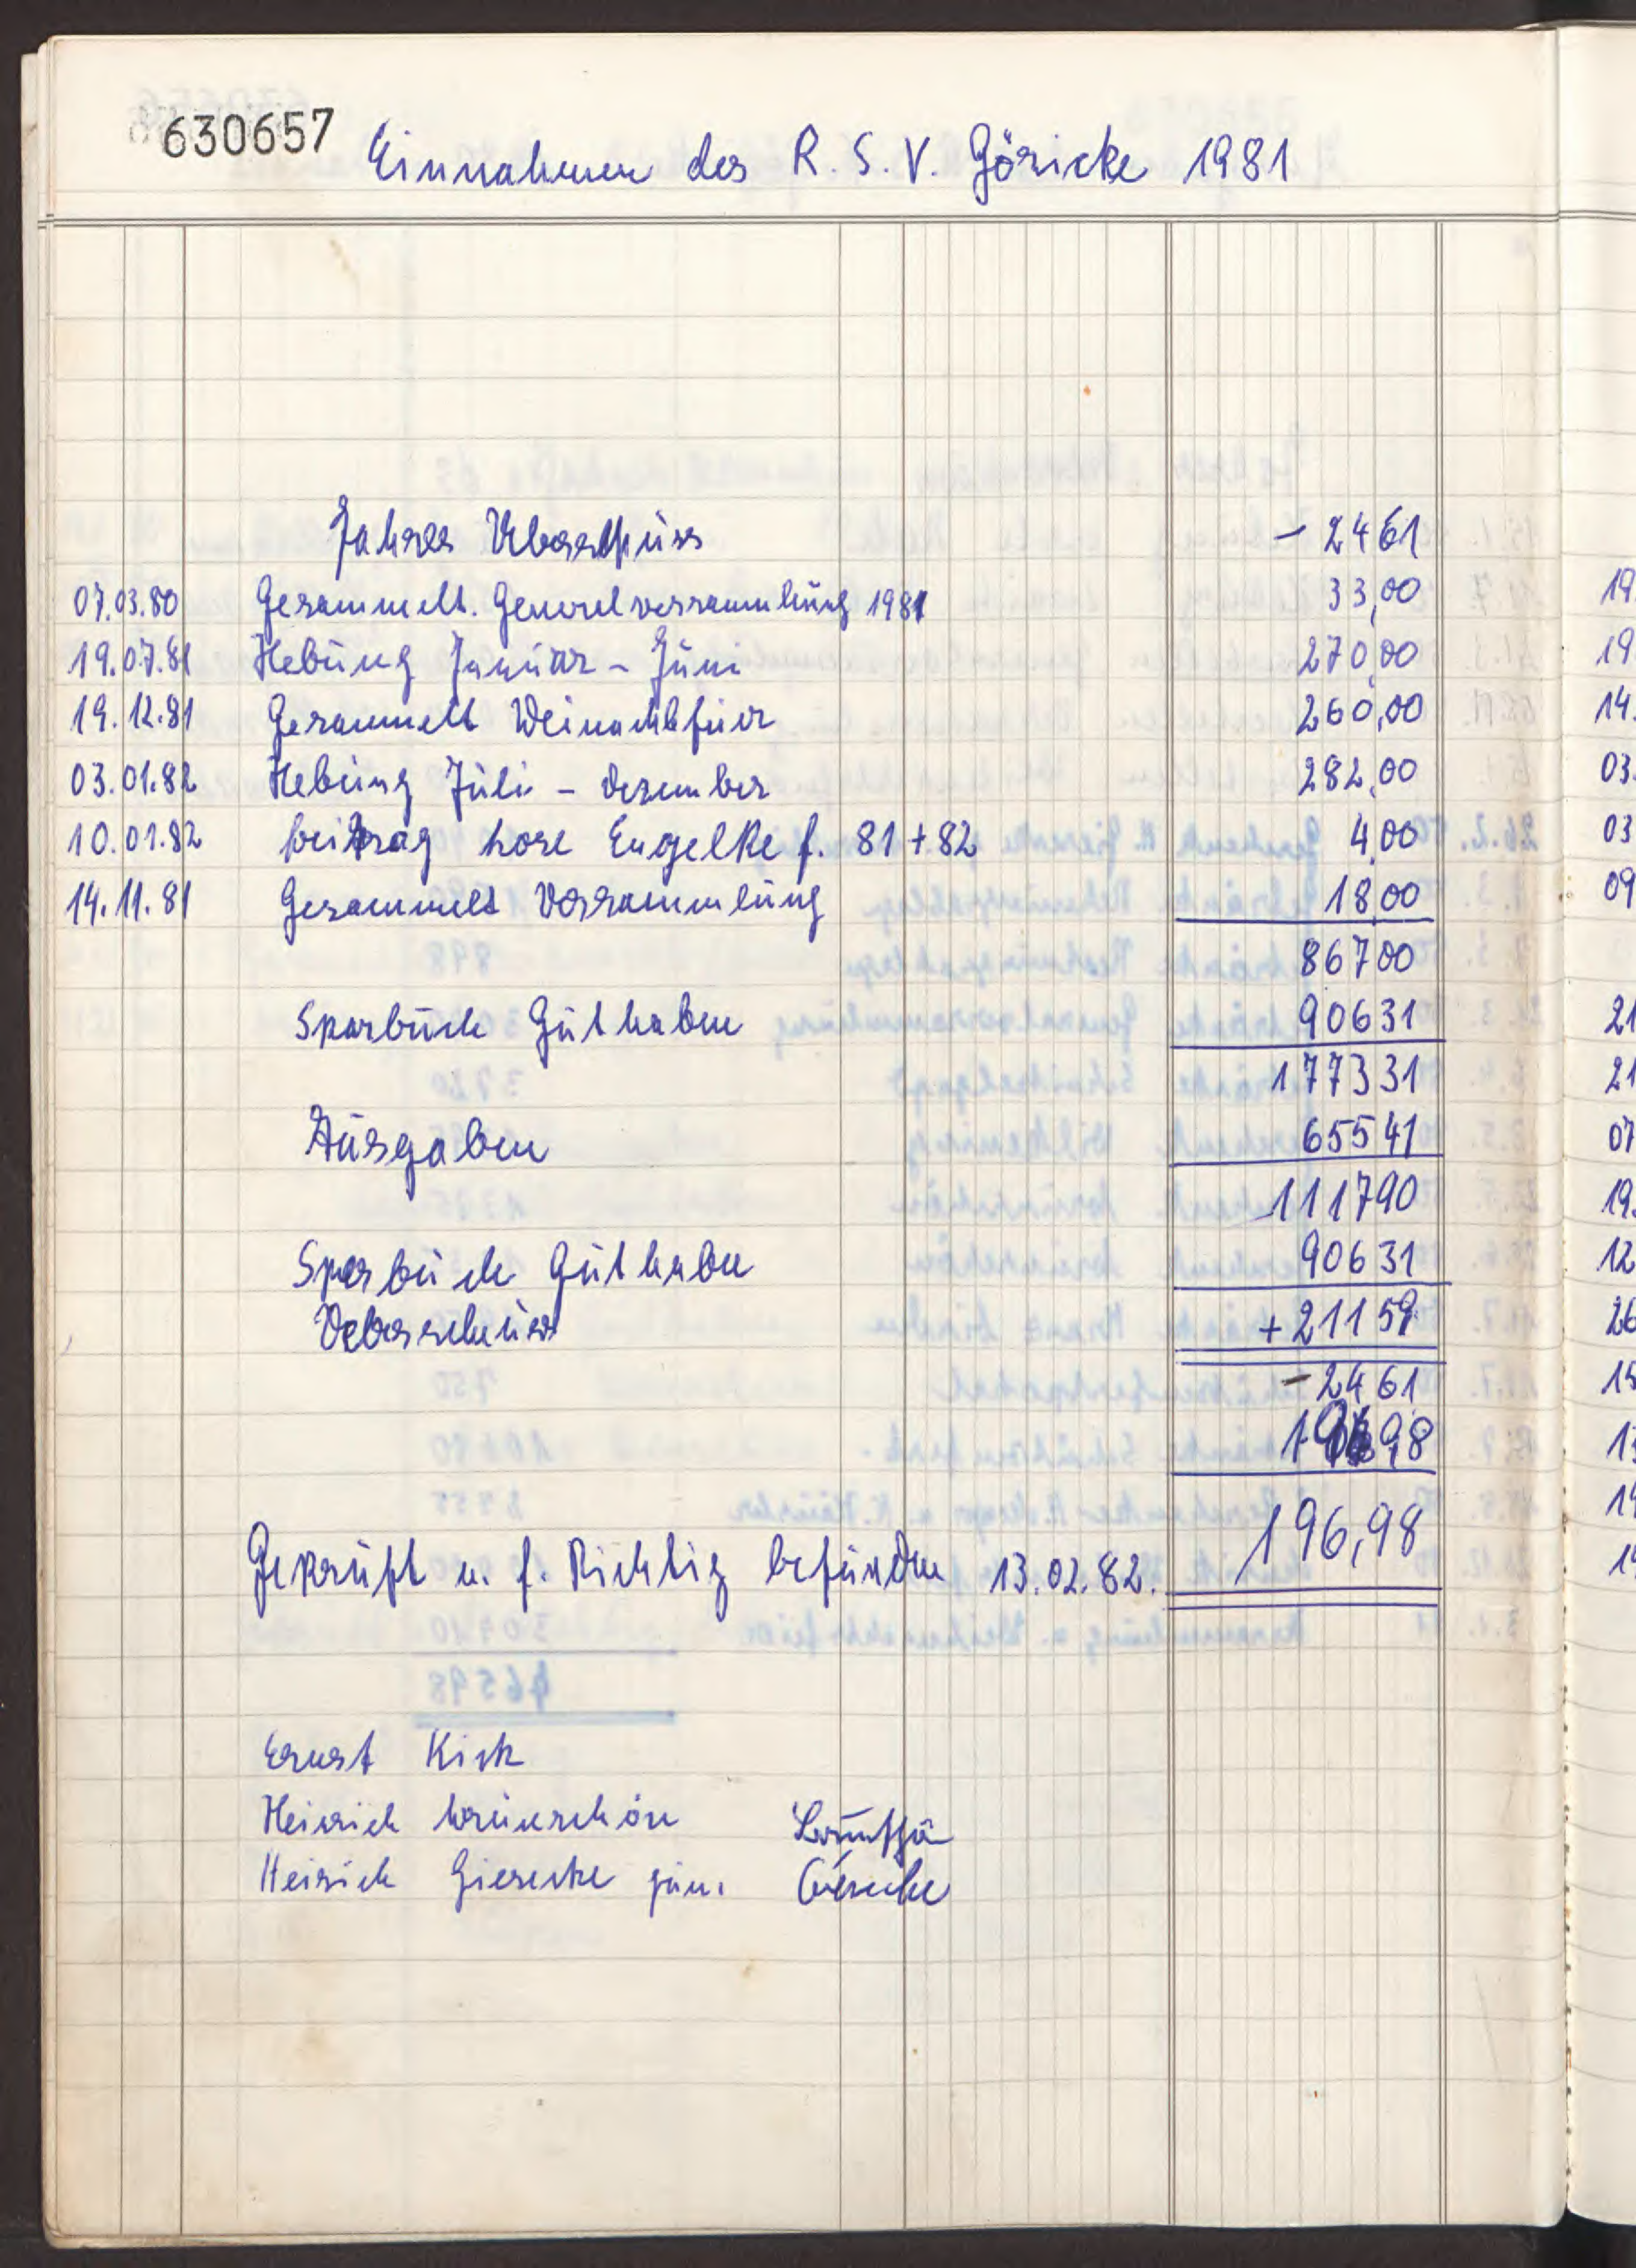 630657 Einnahmen des R. S. V. Göricke 1981
Jahres Ueberschuss - 2461
07.03.80 Gesammelt. Generalversammlung 1981 33,00
19.07.81 Hebung Januar - Juni 270,00
19.12.81 Gesammelt Weinachtsfeier 260,00
03.01.82 Hebung Juli - Dezember 282,00
10.01.82 beitrag hore Engelke f. 81 + 82 4,00
14.11.81 Gesammelt Versammlung 18,00
86700
Sparbuch Guthaben 90631
177331
Ausgaben 65541
111790
Sparbuch Guthaben 90631
Ueberschuss + 21159
- 2461
98
196,98
Geprüft u. f. Richtig befunden 13.02.82.
Ernst Kick
Heinrich Grünschön
Heirich Giesecke jun. Giesecke
19.
19
14.
03.
03
09
21
21
07
19.
12
26
15
13
14
14